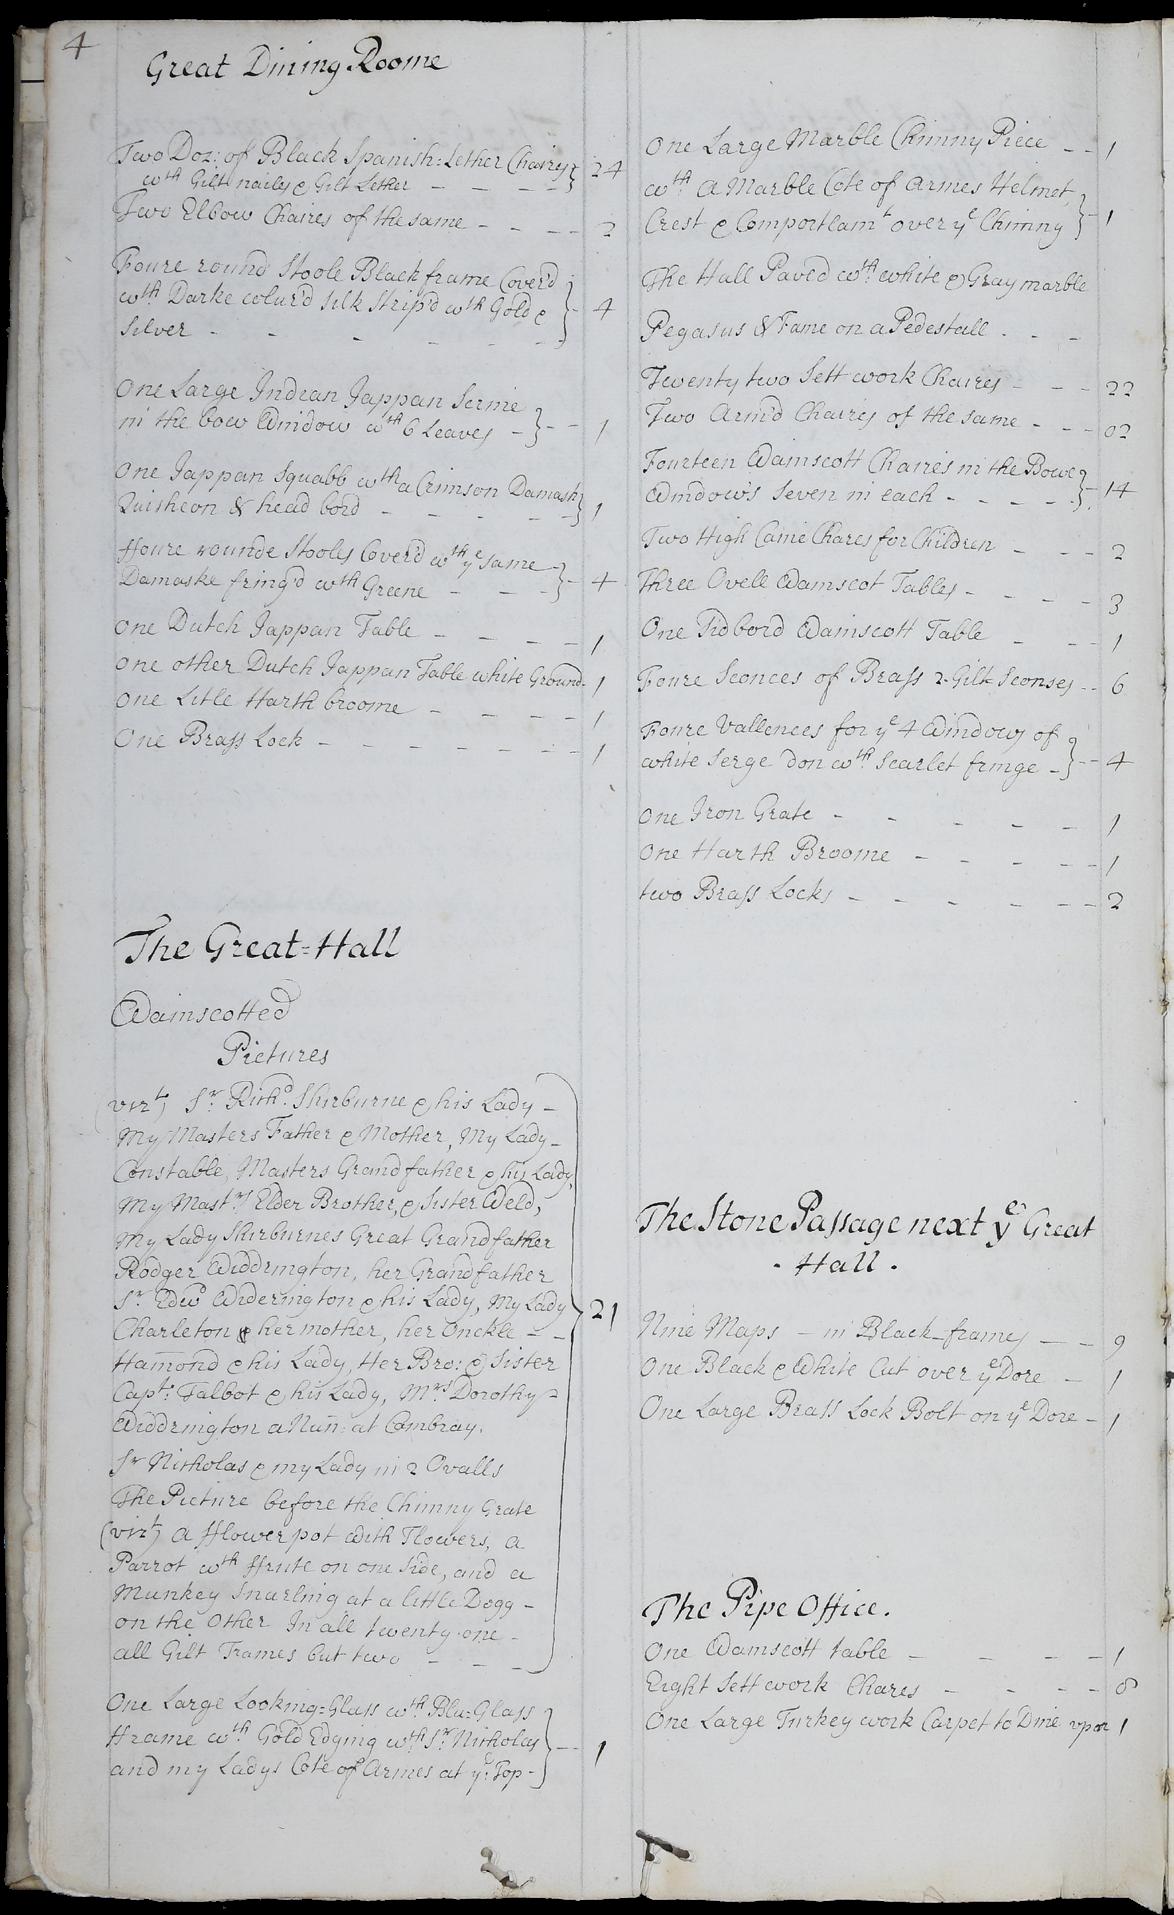 4
Great Dining Roome
Two Doz: of Black Spanish=Lether Chaires } 24
wth Gilt nailes & Gilt Lether - - - -
Two Elbow Chaires of the same - - - - 2
Foure round Stoole Black frame Cover'd
wth Darke colur'd silk Strip'd wth Gold & } - 4
Silver - - - - - -
One Large Indian Jappan Scrine
in the bow Window wth 6 Leaves - } - - 1
One Jappan Squabb wth a Crimson Damask
Quisheon & head bord - - - - - } 1
ffoure rounde Stooles Cover'd wth ye same
Damaske fring'd wth Greene - - - } - 4
One Dutch Jappan Table - - - - 1
One other Dutch Jappan Table white Ground - 1
One Litle Harth broome - - - - 1
One Brass Lock - - - - - - - - 1
The Great=Hall
Wainscotted
Pictures
(vizt) Sr Richd Shirburne & his Lady -
My Masters Father & Mother, My Lady -
Constable, Masters Grandfather & his Lady,
My Mastrs Elder Brother, & Sister Weld,
My Lady Shirburnes Great Grandfather
Rodger Widdrington, her Grandfather
Sr Edwd Widerington & his Lady, My Lady } 21
Charleton & her mother, her Onckle - -
Hamond & his Lady, Her Bro: & Sister
Capt: Talbot & his Lady, Mrs Dorothy -
Widdrington a Nun: at Cambray.
Sr Nicholas & my Lady in 2 Ovalls
The Picture before the Chimny Grate
(vizt) a fflower pot with Flowers, a
Parrot wth ffrute on one side, and a
Munkey Snarling at a little Dogg -
on the Other In all twenty one -
all Gilt Frames but two - - -
One Large Looking=Glass wth Blu=Glass
Frame wth Gold Edging wth Sr Nicholas } - - 1
and my Ladys Cote of Armes at ye Top -
One Large Marble Chimny Piece - - 1
wth a Marble Cote of Armes Helmet,
Crest & Comportlamt over ye Chimny } - 1
The Hall Paved wth white & Gray marble
Pegasus & Fame on a Pedestall - - -
Twenty two Sett work Chaires - - - 22
Two Arm'd Chaires of the same - - - 02
Fourteen Wainscott Chaires in the Bowe
Window's Seven in each - - - - - } - 14
Two High Caine Chares for Children - - - 2
Three Ovell Wainscot Tables - - - - 3
One Sidbord Wainscott Table - - - 1
Foure Sconces of Brass 2 Gilt Sconses - - 6
Foure Vallences for ye 4 Windows of
white Serge don wth Scarlet fringe - } - - 4
One Iron Grate - - - - - 1
One Harth Broome - - - - - 1
two Brass Locks - - - - - - 2
The Stone Passage next ye Great
Hall.
Nine Maps - in Black-frames - - 9
One Black & White Cut over ye Dore - 1
One Large Brass Lock Bolt on ye Dore - 1
The Pipe Office.
One Wainscott table - - - - 1
Eight Sett work Chares - - - - 8
One Large Turkey work Carpet to Dine vpon 1